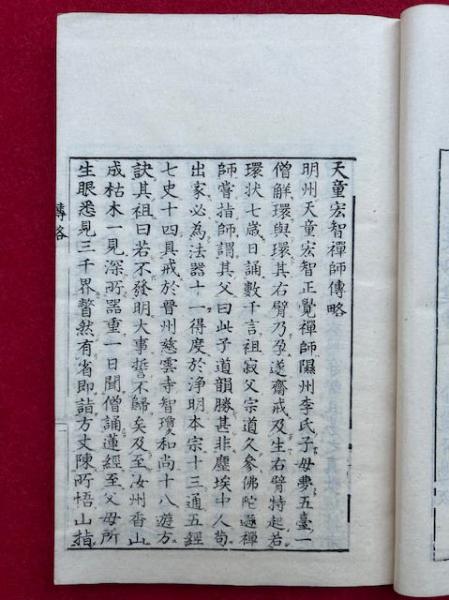 天童宏智禪師傳略
明州天童宏智正覺禪師隰州李氏子母夢五臺一
僧解環與環其右臂乃孕遂齋戒及生右臂特起若
環狀七歲日誦數千言祖寂父宗道久參佛陀遜禪
師嘗指師謂其父曰此子道韻勝甚非塵埃中人苟
出家必為法器十一得度於淨明本宗十三通五經
七史十四具戒於晉州慈雲寺智瓊和尚十八遊方
訣其祖曰若不發明大事誓不歸矣及至汝州香山
成枯木一見深所器重一日聞僧誦蓮經至父母所
生眼悉見三千界瞥然有省即詣方丈陳所悟山指
傳略
一